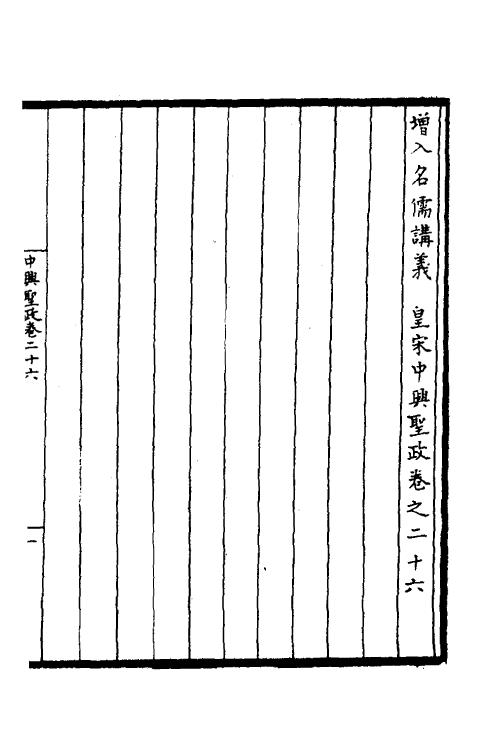 增入名儒講義 皇宋中興聖政卷之二十六
中興聖政卷二十六
一